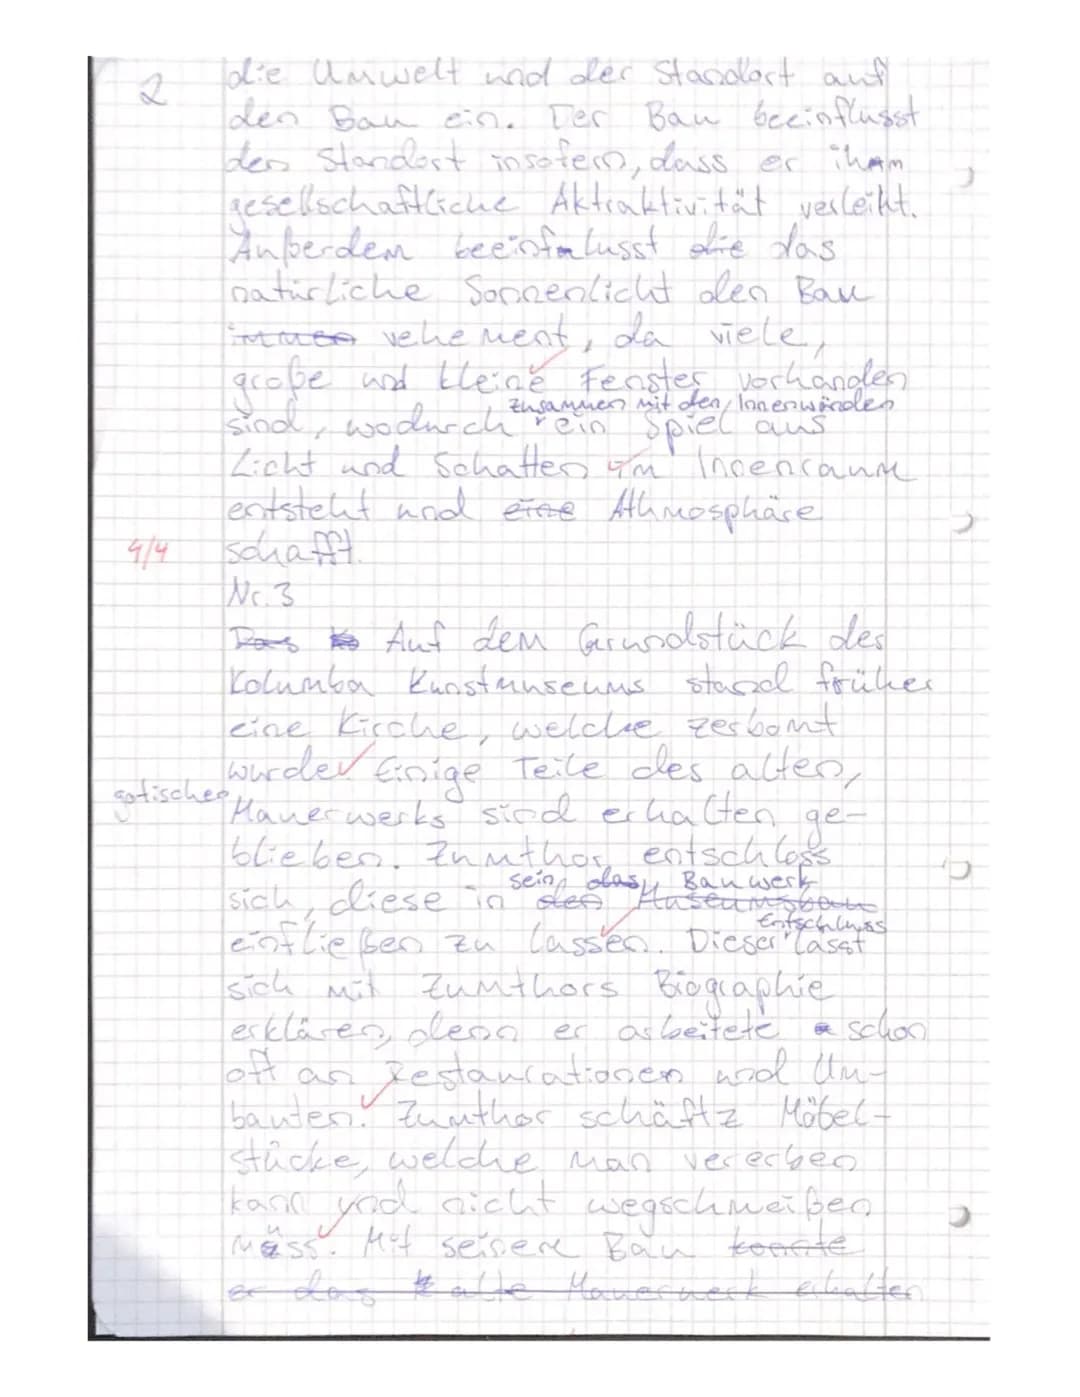 2
die Umwelt und der Standort auf
den Bau ein. Der Bau beeinflusst
den Standort insofern, dass er ihm
gesellschaftliche Aktraktivität verleiht.
Außerdem beeinflusst die das
natürliche Sonnenlicht den Bau
immer vehement, da viele,
große und kleine Fenster vorhanden
zusammen mit den Innenwänden
sind, wodurch ein Spiel aus
Licht und Schatten im Innenraum
entsteht und eine Athmosphäre
4/4 schafft.
Nr. 3
Das Auf dem Grundstück des
Kolumba Kunstmuseums stand früher
eine Kirche, welche zerbomt
wurde. Einige Teile des alten,
gotischen Mauerwerks sind erhalten ge-
blieben. Zumthor entschloss
sein das Bauwerk
sich, diese in den Museumsbau
Entschluss
einfließen zu lassen. Dieser lässt
sich mit Zumthors Biographie
erklären, denn er arbeitete schon
oft an Restaurationen und Um-
bauten. Zumthor schäftz Möbel-
stücke, welche man vererben
kann und nicht wegschmeißen
müss. Mit seinem Bau konnte
er das alte Mauerwerk erhalten